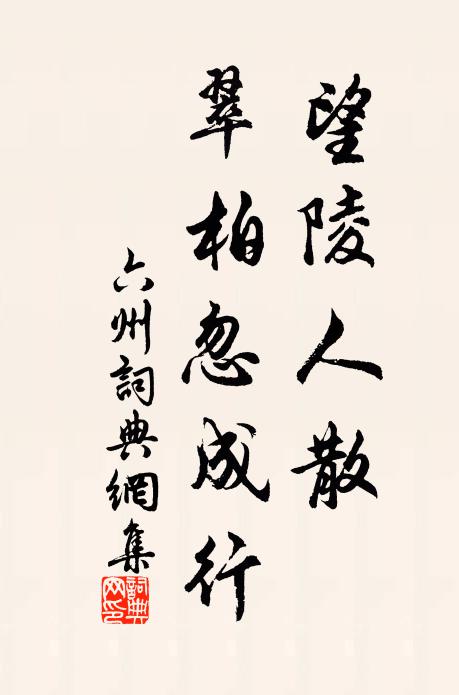 望陵人散
翠柏忽成行
六州詞典網集
詞典
网印